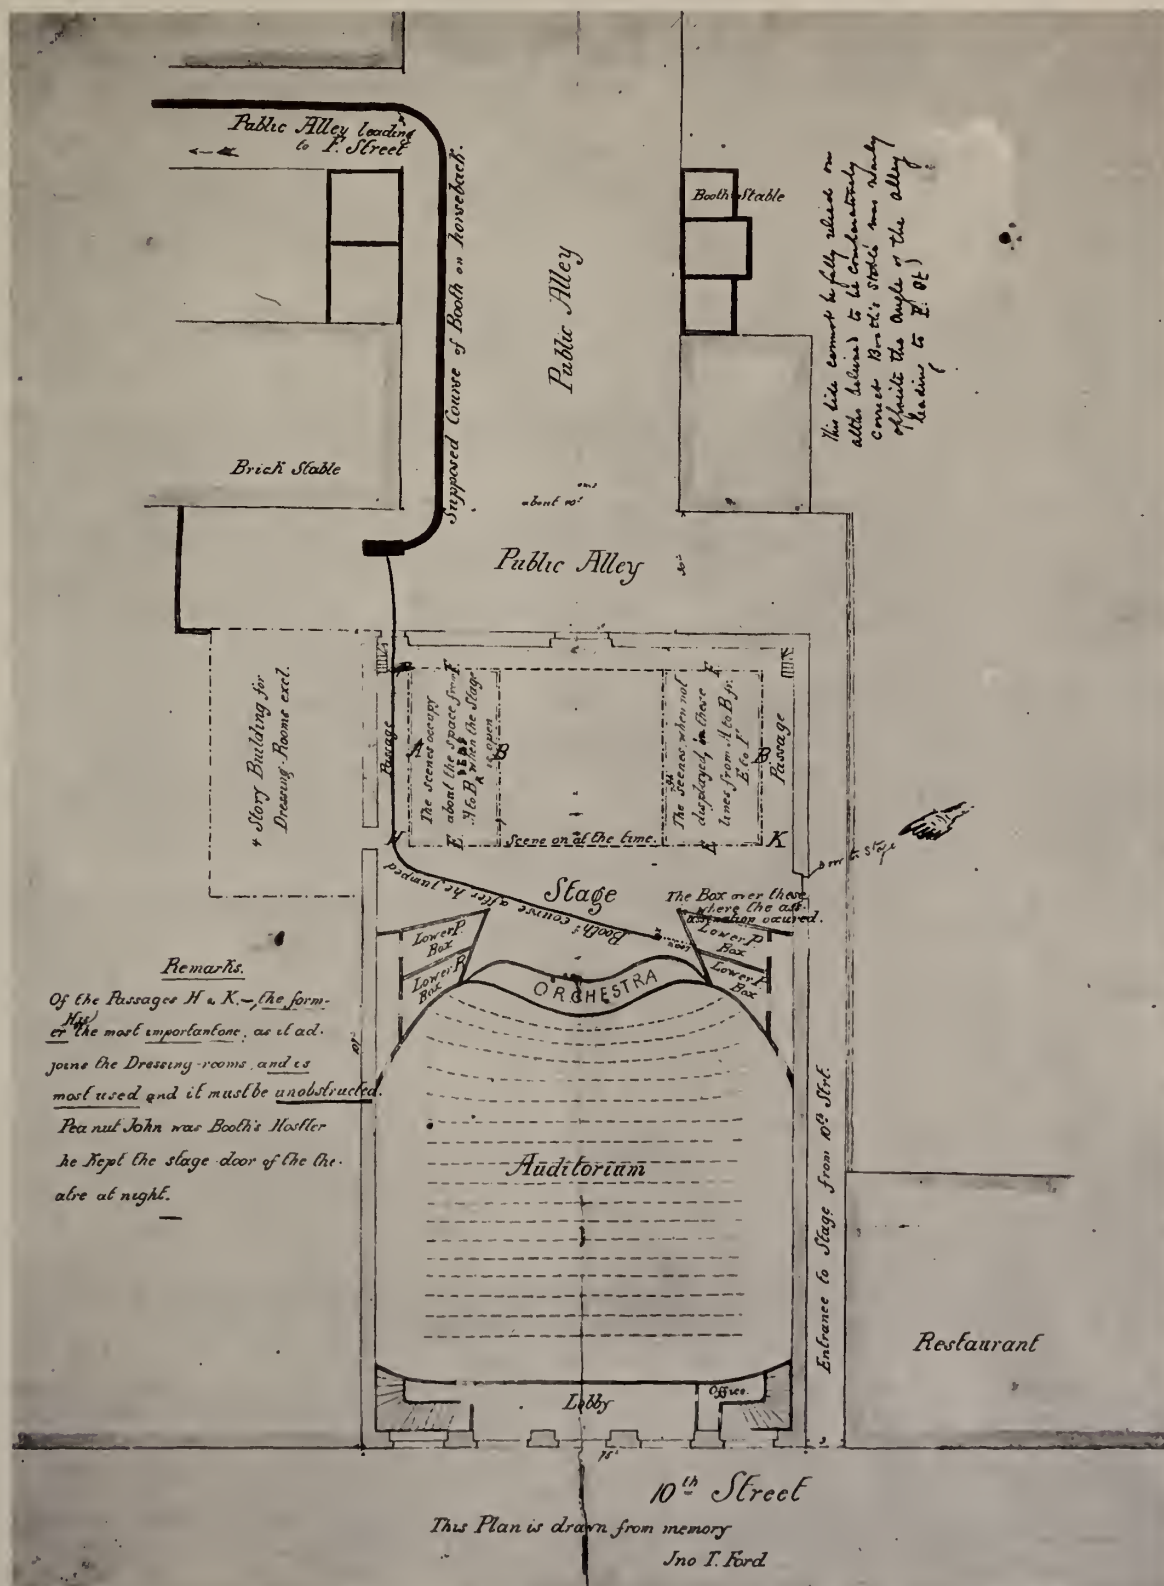 Public Alley leading
to F. Street
Supposed Course of Booth on horseback.
Public Alley
Booth Stable
This side cannot be fully relied on
altho believed to be comparatively
correct Booth's stable was nearly
opposite the Angle of the alley
leading to
Brick Stable
about
Public Alley
4 Story Building for
Dressing-Rooms excl.
Passage
The scenes occupy
about the space from
A to B when the Stage
is open
A
B
E
F
P
H
The scenes when not
displayed, in these
lines from A to B fr.
E to F
F
B
E
K
Passage
Scene on at the time.
Door to Stage
Stage
Booth's course after he jumped
The Box over these
where the ass-
assination occured.
Lower P.
Box
Lower P.
Box
Lower P.
Box
Lower P.
Box
ORCHESTRA
Remarks.
Of the Passages H & K.—, the form-
er (H is) the most important one, as it ad-
joins the Dressing-rooms, and is
most used and it must be unobstructed.
Peanut John was Booth's Hostler
he Kept the stage door of the the-
atre at night.
Auditorium
Entrance to Stage from 10th Strt.
Restaurant
Office.
Lobby
75'
10th Street
This Plan is drawn from memory
Jno T. Ford